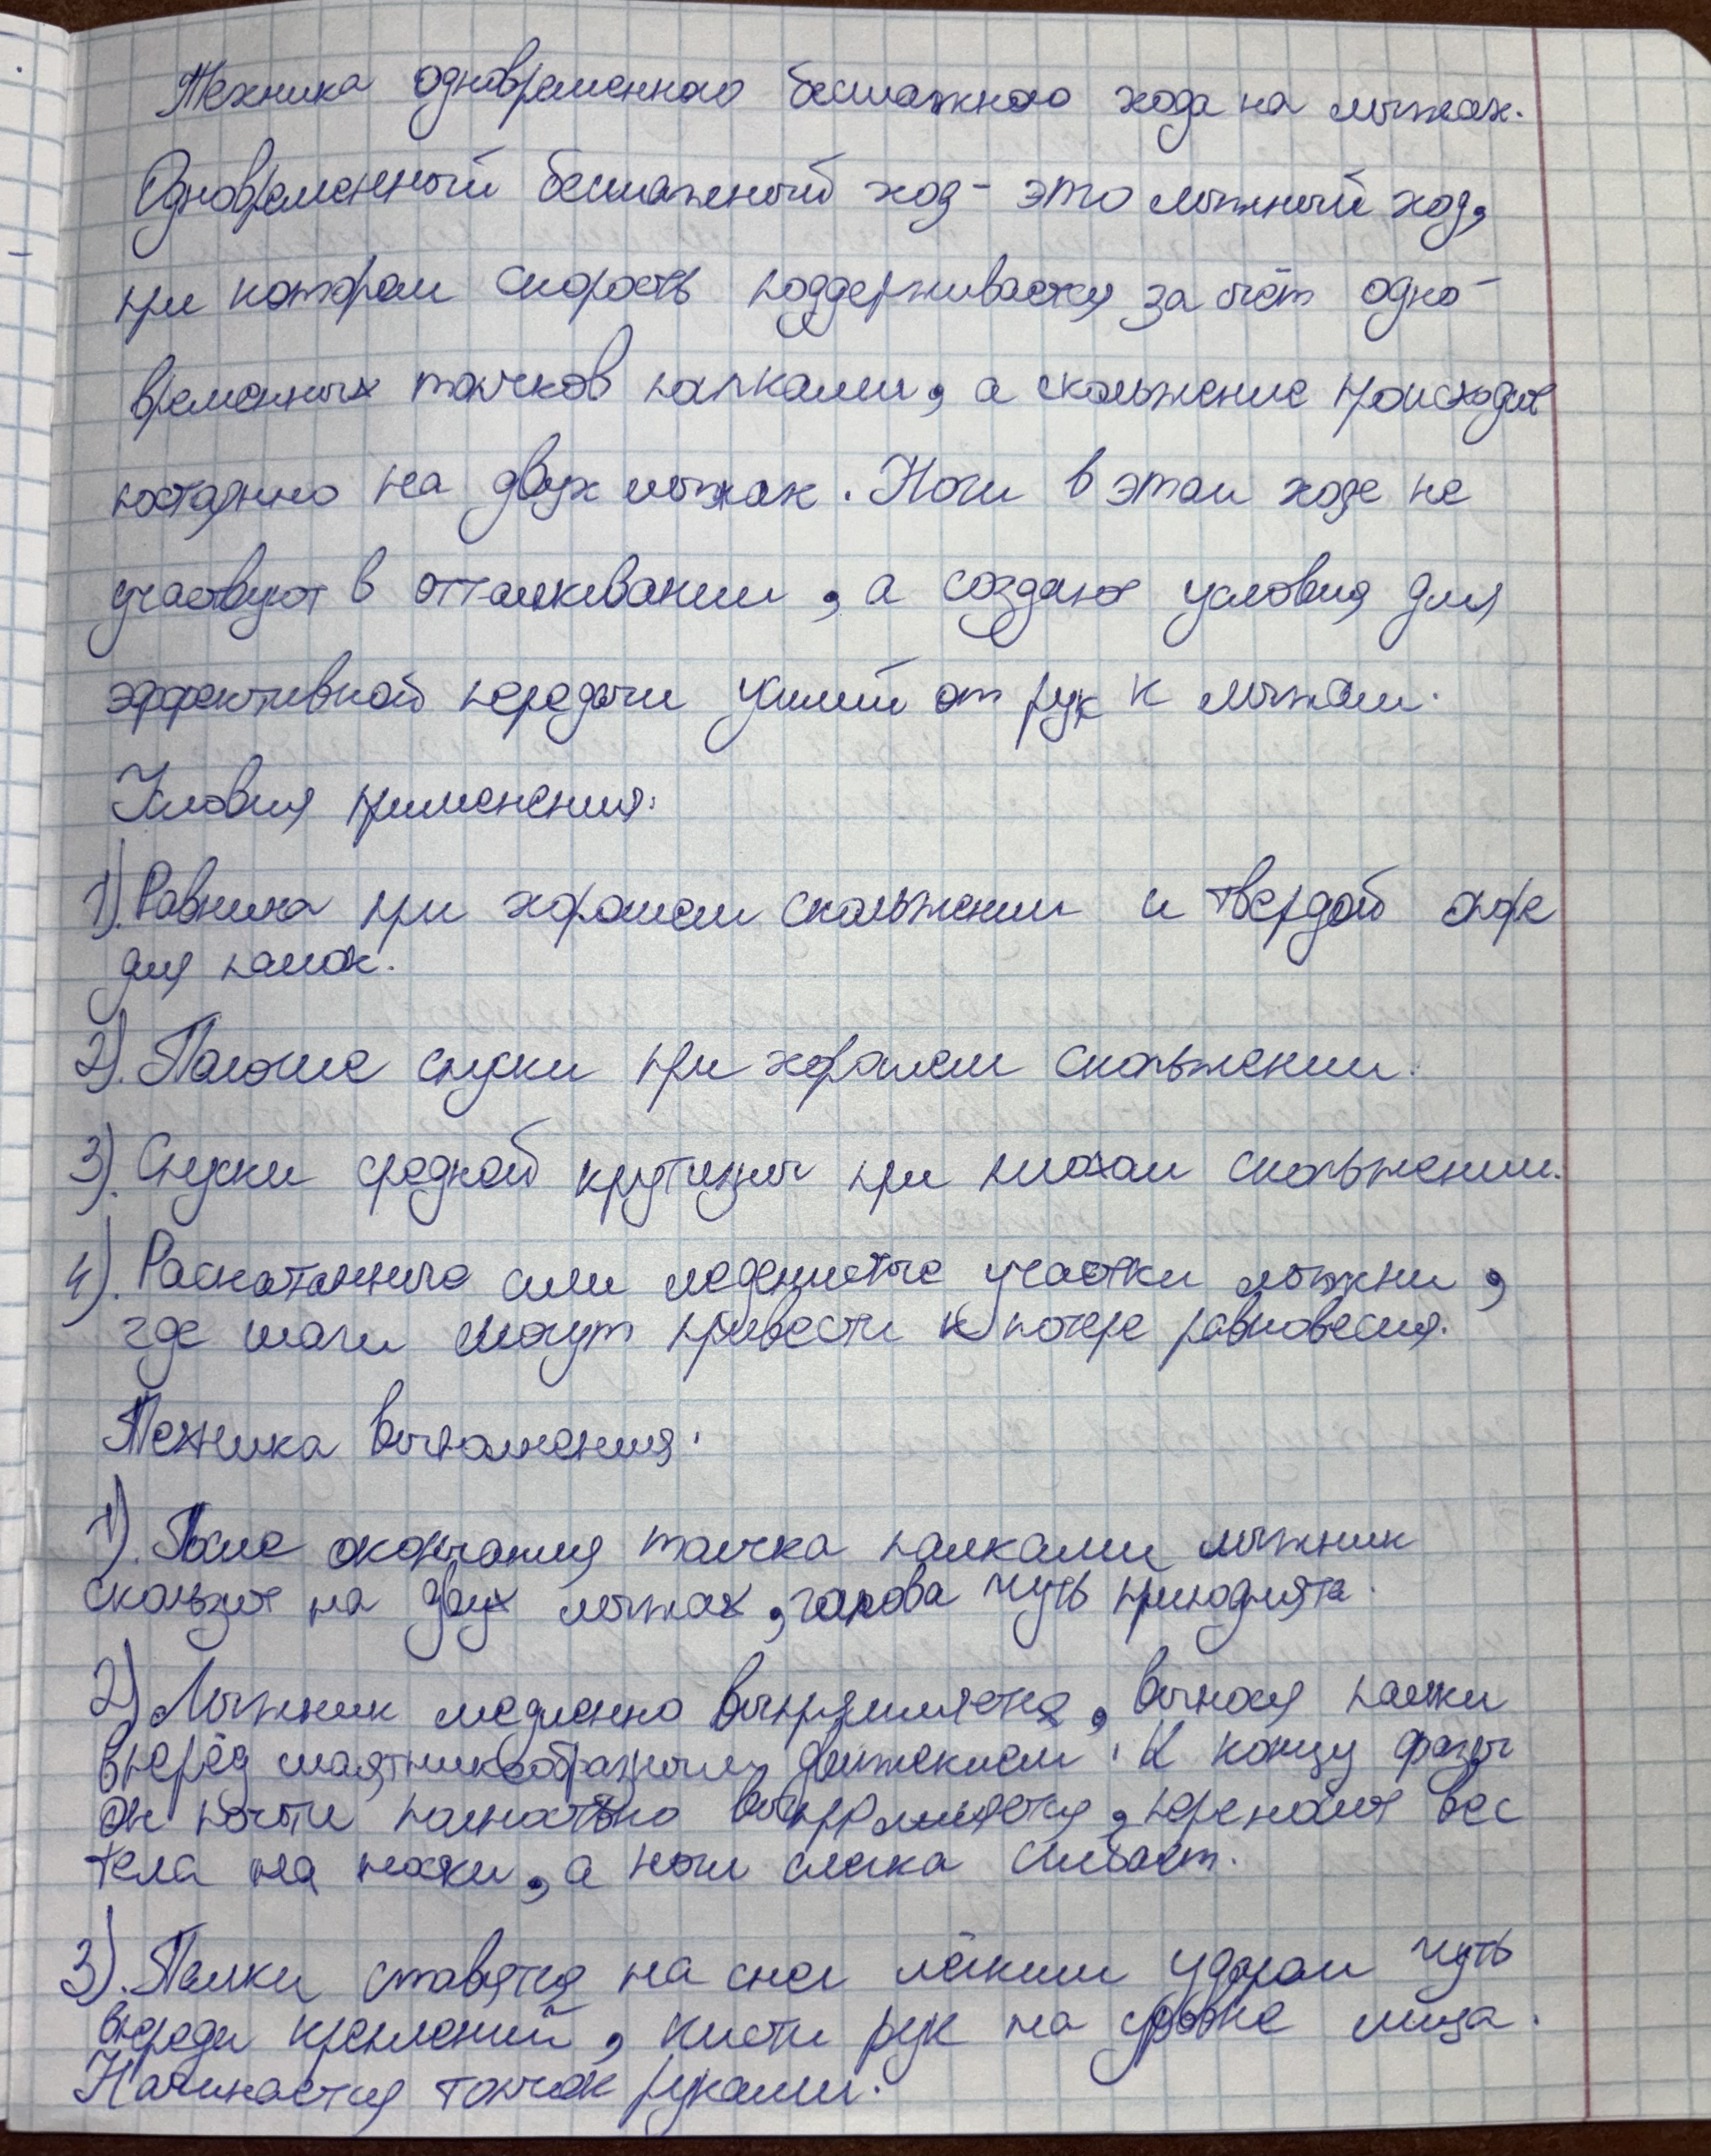 Техника одновременного бесшажного хода на лыжах.
Одновременный бесшажный ход - это лыжный ход,
при котором скорость поддерживается за счёт одно-
временных толчков палками, а скольжение происходит
постоянно на двух лыжах. Ноги в этом ходе не
участвуют в отталкивании, а создают условия для
эффективной передачи усилий от рук к лыжам.
Условия применения:
1). Равнина при хорошем скольжении и твёрдой опоре
для палок.
2). Пологие спуски при хорошем скольжении.
3). Спуски средней крутизны при плохом скольжении.
4). Раскатанные или леденистые участки лыжни,
где шаги могут привести к потере равновесия.
Техника выполнения:
1). После окончания толчка палками лыжник
скользит на двух лыжах, голова чуть приподнята.
2) Лыжник медленно выпрямляется, вынося палки
вперёд маятникообразным движением. К концу фазы
он почти полностью выпрямляется, переносит вес
тела на носки, а ноги слегка сгибает.
3). Палки ставятся на снег лёгким ударом чуть
впереди креплений, кисти рук на уровне лица.
Начинается толчок руками.